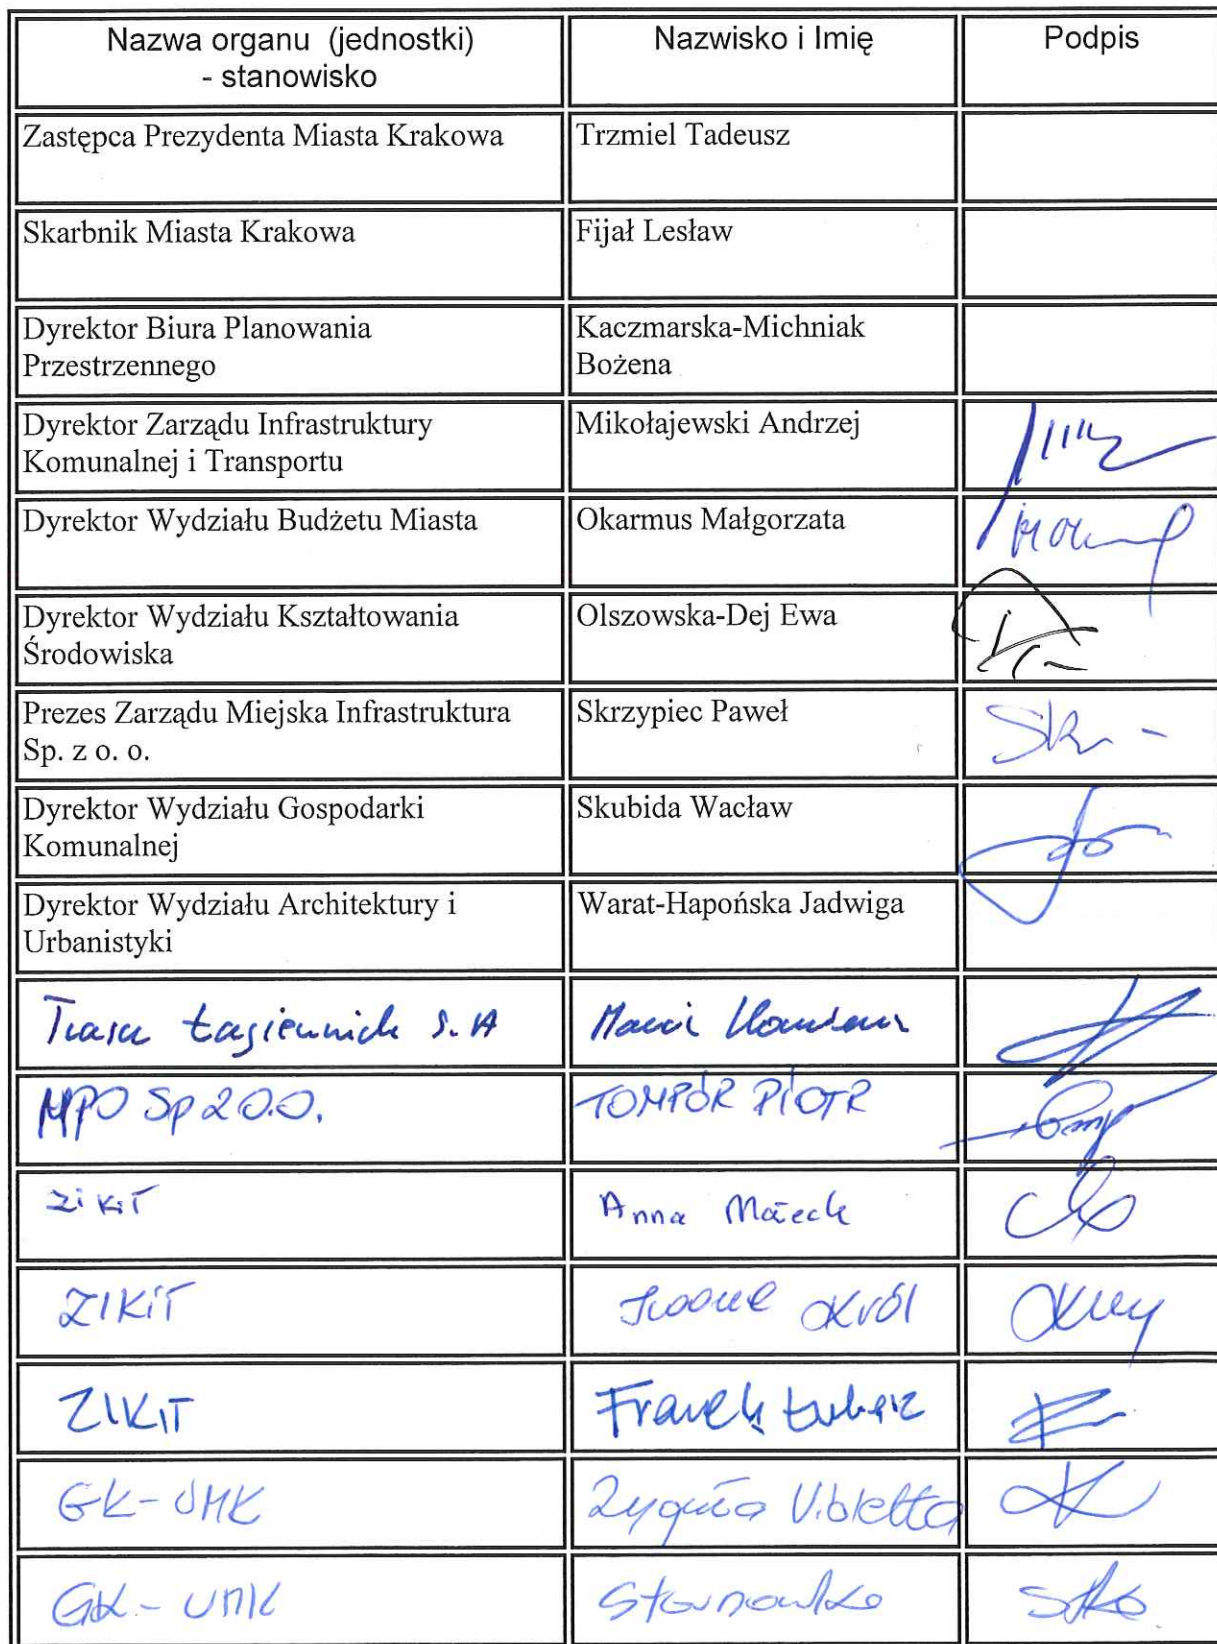 Nazwa organu (jednostki)
- stanowisko
Nazwisko i Imię
Podpis
Zastępca Prezydenta Miasta Krakowa
Trzmiel Tadeusz
Skarbnik Miasta Krakowa
Fijał Lesław
Dyrektor Biura Planowania
Przestrzennego
Kaczmarska-Michniak
Bożena
Dyrektor Zarządu Infrastruktury
Komunalnej i Transportu
Mikołajewski Andrzej
Dyrektor Wydziału Budżetu Miasta
Okarmus Małgorzata
Dyrektor Wydziału Kształtowania
Środowiska
Olszowska-Dej Ewa
Prezes Zarządu Miejska Infrastruktura
Sp. z o. o.
Skrzypiec Paweł
Dyrektor Wydziału Gospodarki
Komunalnej
Skubida Wacław
Dyrektor Wydziału Architektury i
Urbanistyki
Warat-Hapońska Jadwiga
Trasa Łagiewnicka S.A
MPO Sp z O.O.
TOMPÓR PIOTR
ZiKiT
Anna
ZIKiT
Król
ZIKiT
Franek Łukasz
GK-UMK
Violetta
GK-UMK